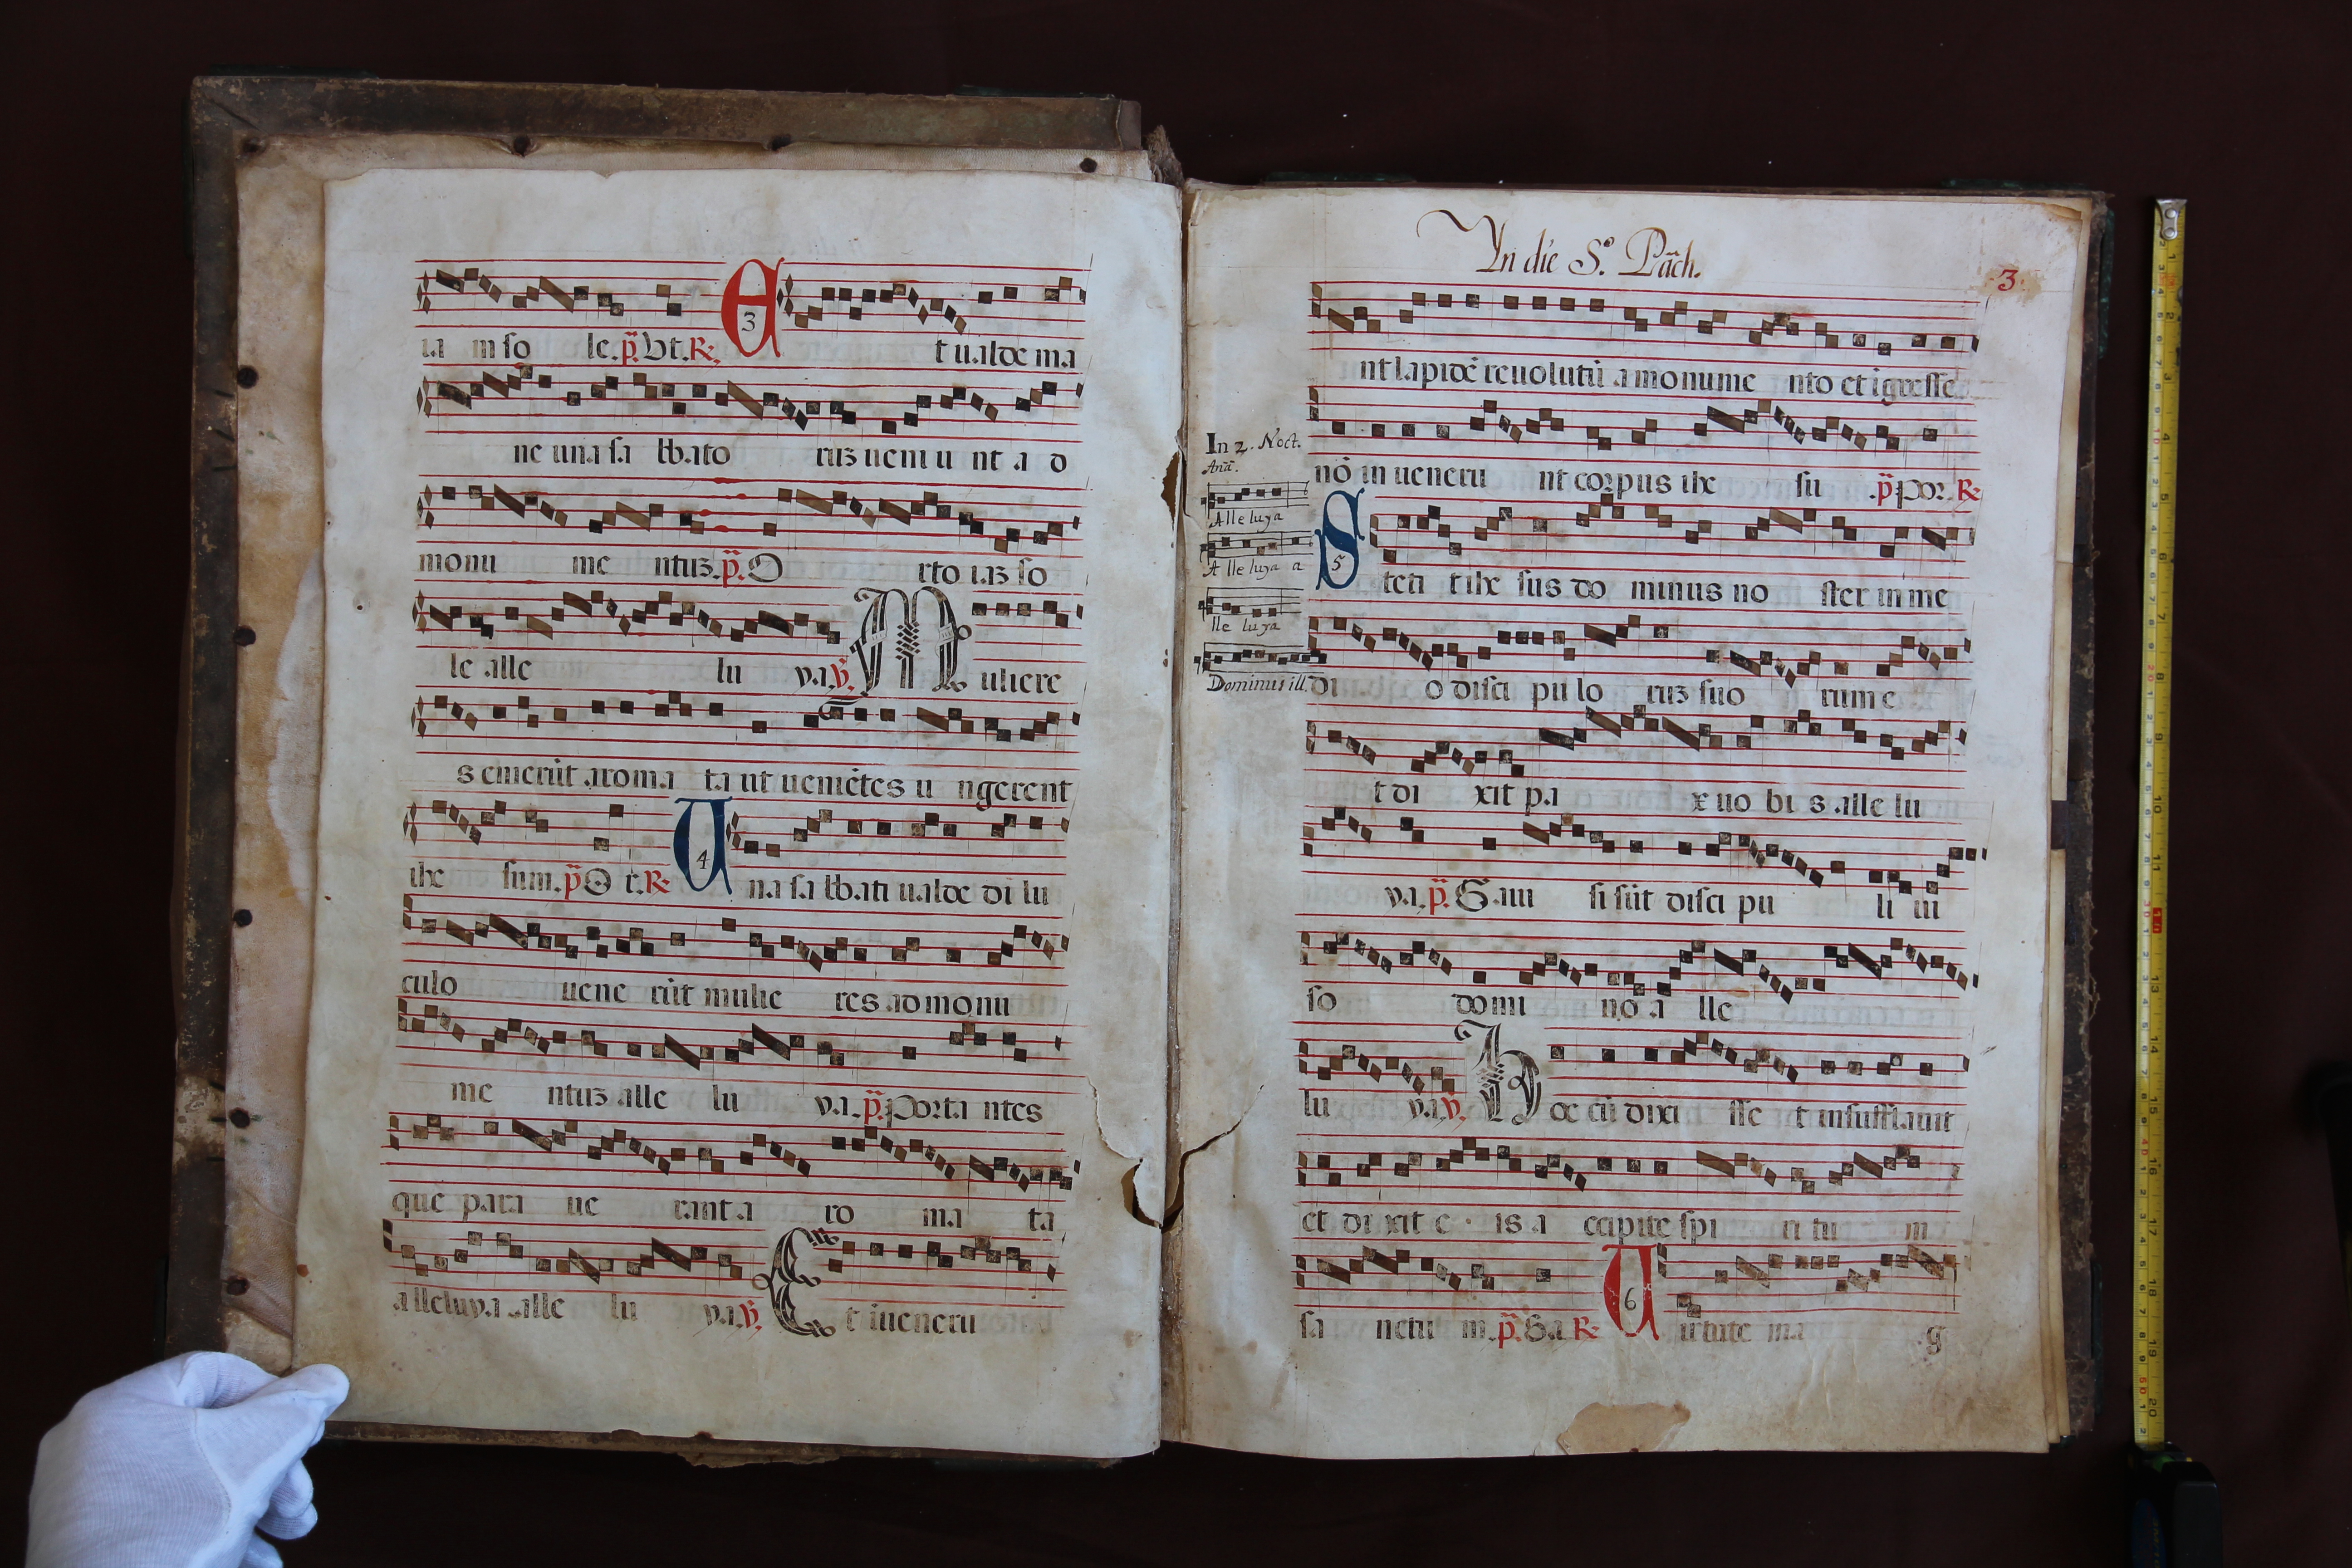 ia m so le. p. Vt. R. E 3 t ualde ma
ne una sa bbato ruz ueni u nt a d
monu me ntuz. p. O rto iaz so
le alle lu ya. V. M uliere
s emerūt aroma ta ut ueniētes u ngerent
ihe sum. p. O r. R. U 4 na sa bbati ualde di lu
culo uene rūt mulie res ad monu
me ntuz alle lu ya. p. Porta ntes
que para ue rant a ro ma ta
alleluya alle lu ya. V. E t īueneru
In die S.º Pāch.
3.
nt lapidē reuolutū a monume nto et īgresse
nō in ueneru nt corpus ihe su .p. Por. R.
In 2. Noct.
Anā.
Alleluya
Alleluya a
lle luya
Dominus ill.
S 5 teti t ihe sus do minus no ster in me
di o disci pu lo ruz suo rum e
t di xit pa x uo bi s alle lu
ya. p. Gaui si sūt disci pu li ui
so domi no a lle
lu ya. V. H oc cū dixi sse t insufflauit
et di xit e is a ccipite spi ri tu m
sa nctu m. p. Ga R. U 6 irtute ma g